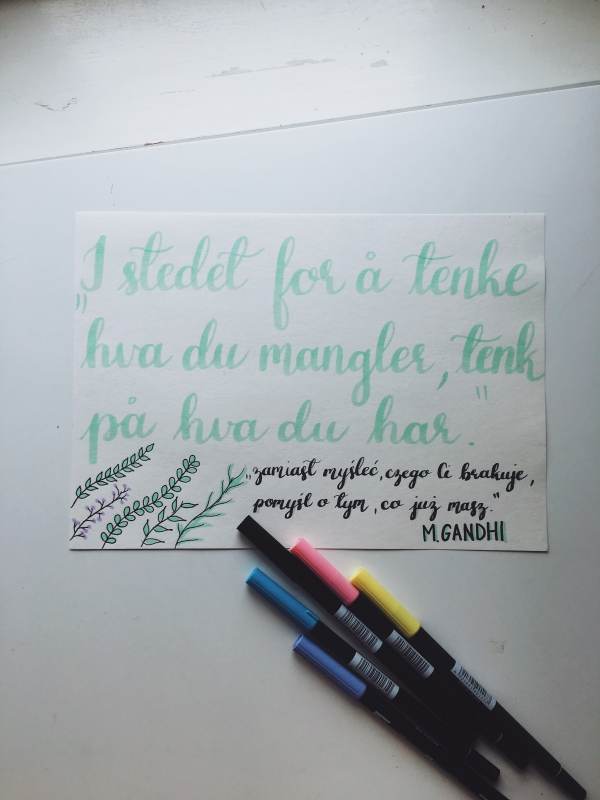 „I stedet for å tenke
hva du mangler, tenk
på hva du har."
„zamiast myśleć, czego Ci brakuje,
pomyśl o tym, co już masz."
M. GANDHI